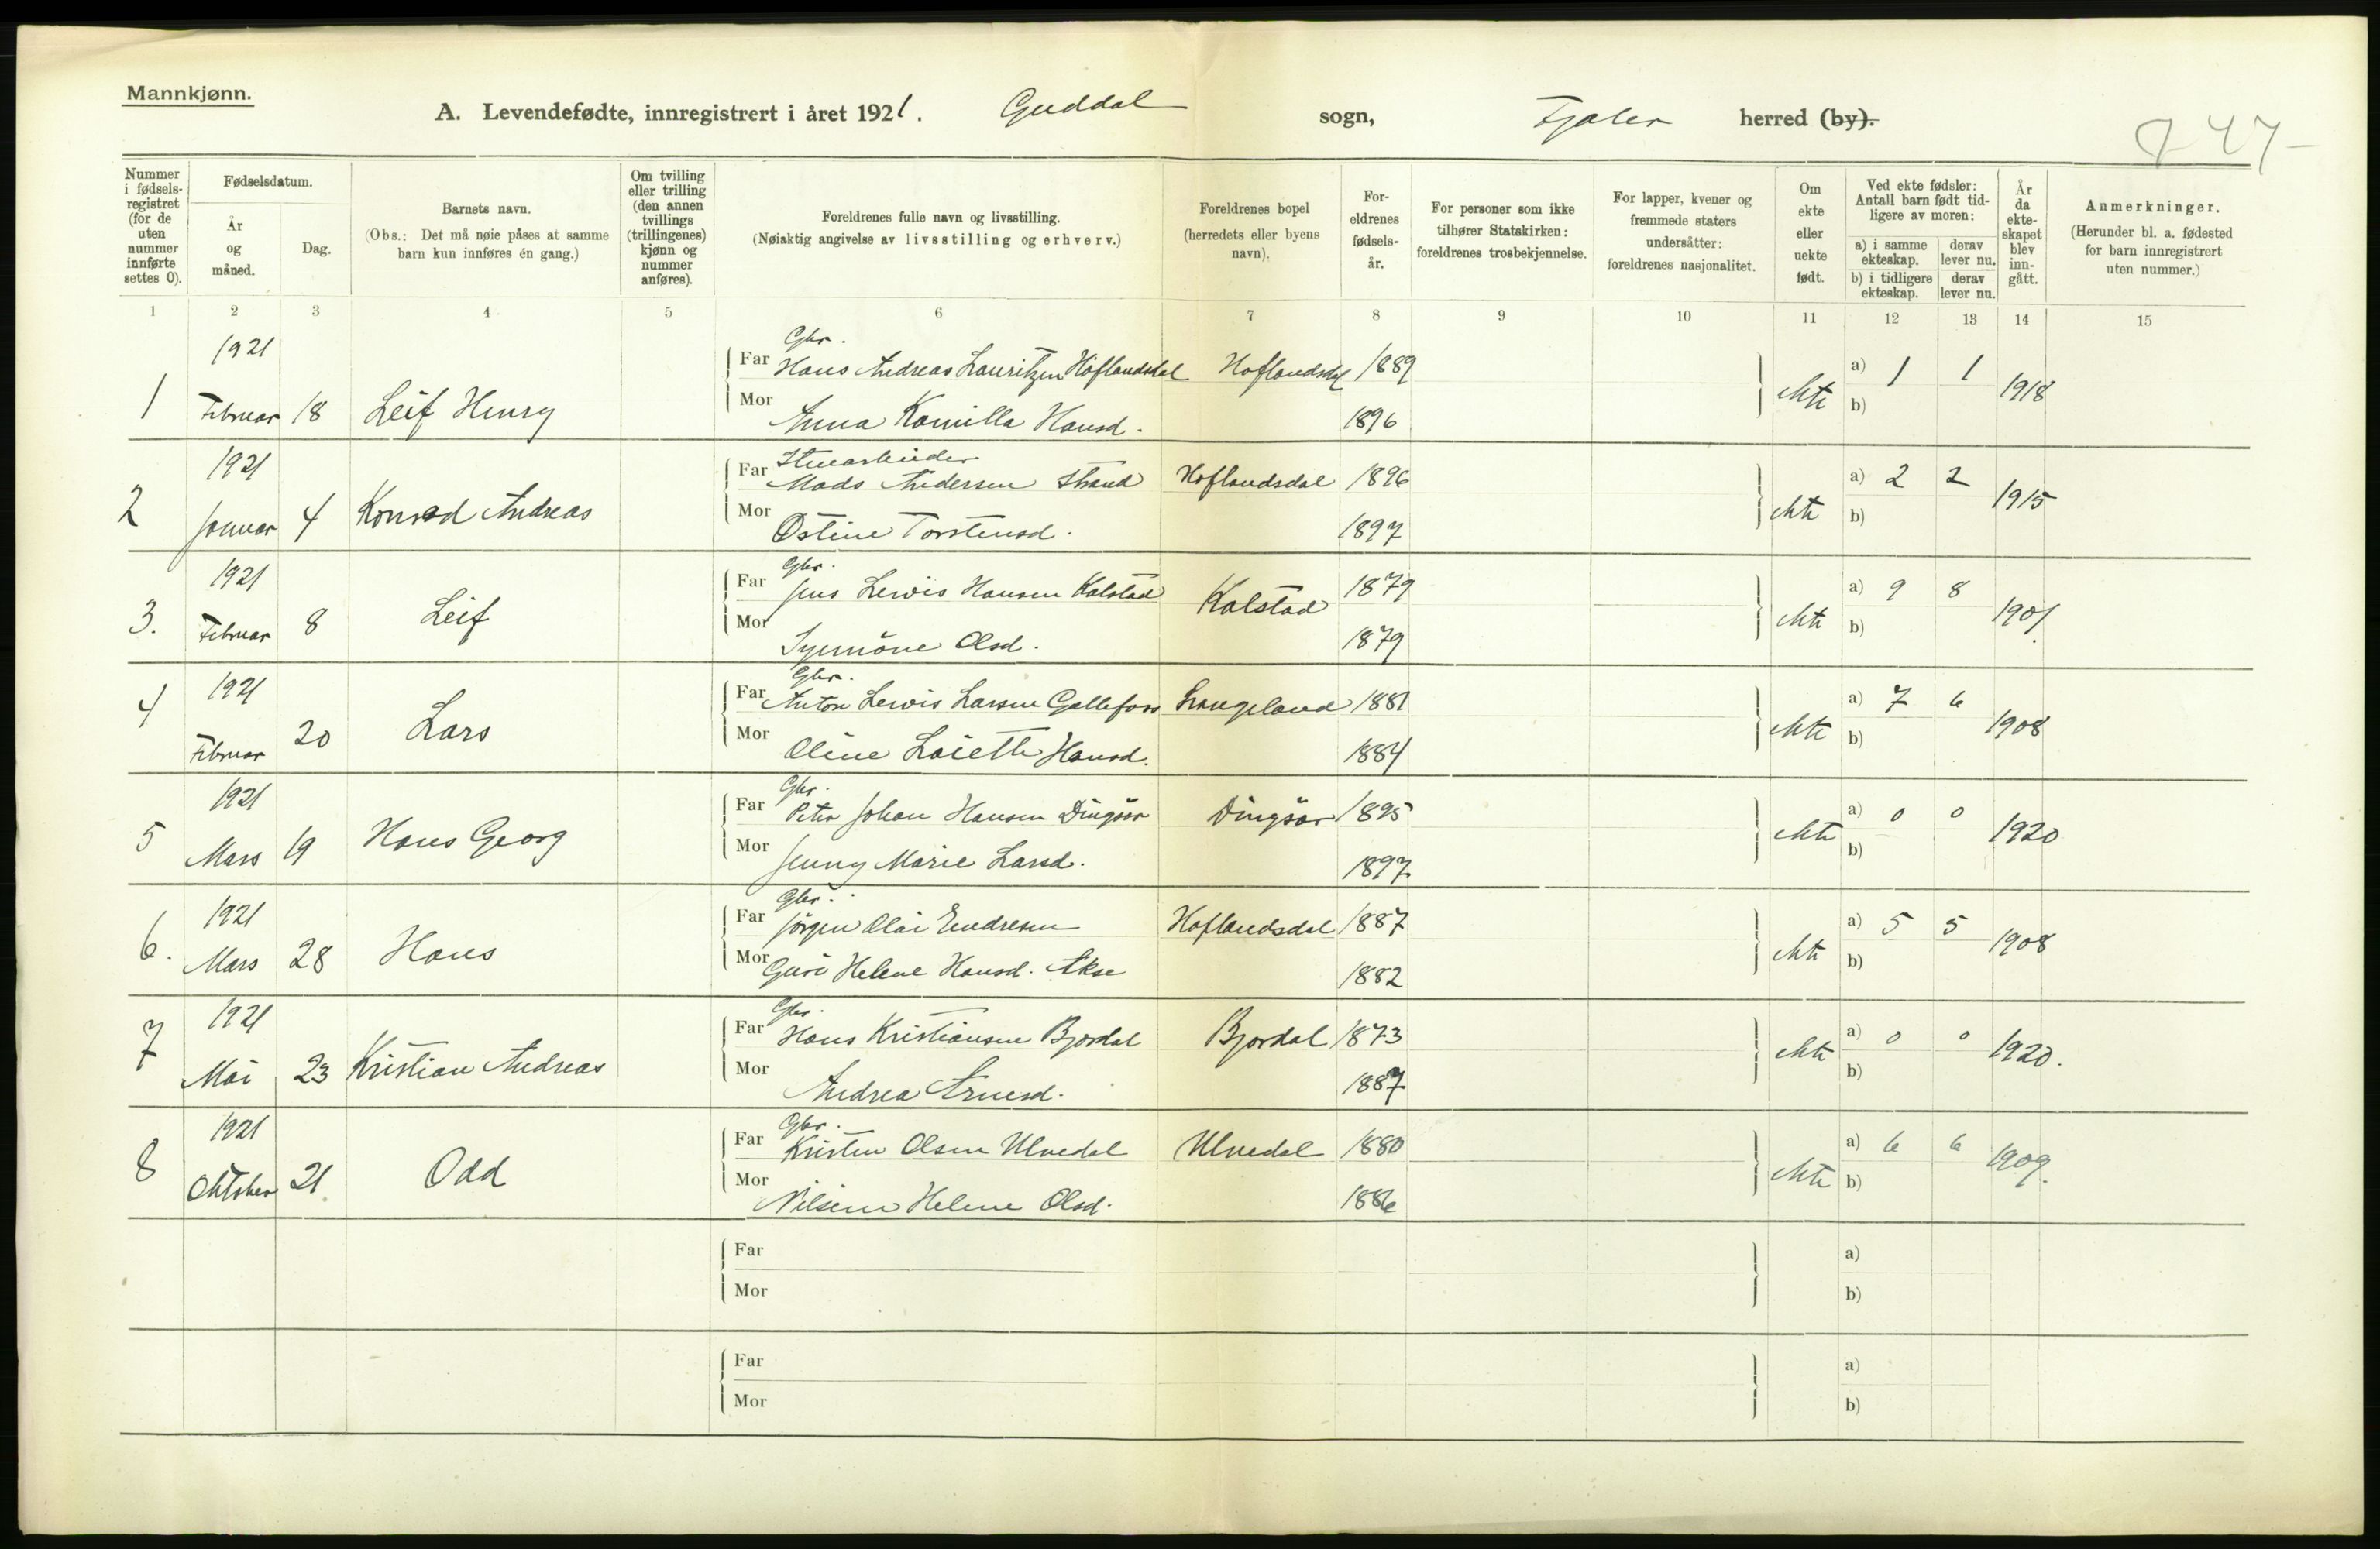 Mannkjønn.
A. Levendefødte, innregistrert i året 1921. Guddal sogn, Fjaler herred (by).
747
Nummer i fødsels-registret (for de uten nummer innførte settes 0).
Fødselsdatum.
År og måned.
Dag.
Barnets navn.
(Obs.: Det må nøie påses at samme barn kun innføres én gang.)
Om tvilling eller trilling (den annen tvillings (trillingenes) kjønn og nummer anføres).
Foreldrenes fulle navn og livsstilling.
(Nøiaktig angivelse av livsstilling og erhverv.)
Foreldrenes bopel (herredets eller byens navn).
For-eldrenes fødsels-år.
For personer som ikke tilhører Statskirken: foreldrenes trosbekjennelse.
For lapper, kvener og fremmede staters undersåtter: foreldrenes nasjonalitet.
Om ekte eller uekte født.
Ved ekte fødsler: Antall barn født tid-ligere av moren:
a) i samme ekteskap.
derav lever nu.
b) i tidligere ekteskap.
derav lever nu.
År da ekte-skapet blev inn-gått.
Anmerkninger.
(Herunder bl. a. fødested for barn innregistrert uten nummer.)
1 2 3 4 5 6 7 8 9 10 11 12 13 14 15
1921 Gbr.
Far Hans Andreas Lauritzen Höflandsdal Hoflandsdal 1889 a) 1 1
1 Februar 18 Leif Henry ekte 1918
Mor Anna Kamilla Hansd. 1896 b)
1921
Far Mads Andersen Strand Hoflandsdal 1896 a) 2 2
2 Januar 4 Konrad Andreas ekte 1915
Mor Östine Torstensd. 1897 b)
1921 Gbr.
Far Jens Lewis Hansen Kalstad Kalstad 1879 a) 9 8
3. Februar 8 Leif ekte 1901.
Mor Synnöve Olsd. 1879 b)
1921 Gbr.
Far Anton Lewis Larsen Gallefoss Langeland 1881 a) 7 6
4 Februar 20 Lars ekte 1908
Mor Oline Hansd. 1884 b)
1921 Gbr.
Far Peter Johan Hansen Dingsör Dingsör 1895 a) 0 0
5 Mars 19 Hans Georg ekte 1920
Mor Jenny Marie Larsd. 1897 b)
1921 Gbr.
Far Jörgen Olai Endresen Hoflandsdal 1887 a) 5 5
6. Mars 28 Hans ekte 1908
Mor Guri Helene Hansd. 1882 b)
1921 Gbr.
Far Hans Kristiansen Bjordal Bjordal 1873 a) 0 0
7 Mai 23 Kristian Andreas ekte 1920.
Mor Andrea Arnesd. 1887 b)
1921 Gbr.
Far Kristen Olsen Ulvedal Ulvedal 1880 a) 6 6
8 Oktober 21. Odd ekte 1909.
Mor Nilsine Helene Olsd. 1886 b)
Far a)
Mor b)
Far a)
Mor b)